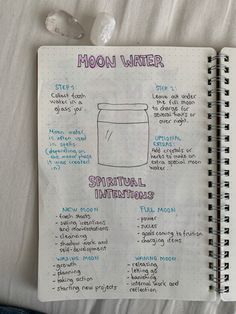 MOON WATER
STEP 1:
Collect fresh
water in a
glass jar
STEP 2:
Leave out under
the full moon
to charge for
several hours
or over night.
Moon water
is often used
in spells
(depending on
the moon phase
it was created
in)
OPTIONAL
EXTRAS:
Add crystals or
herbs to make an
extra special moon
water
SPIRITUAL
INTENTIONS
NEW MOON
- fresh starts
- setting intentions
and manifestations
- cleansing
- shadow work and
self-development
FULL MOON
- power
- success
- goals coming to fruition
- charging items
WAXING MOON
- growth
- planning
- taking action
- starting new projects
WANING MOON
- releasing
- letting go
- banishing
- internal work and
reflection